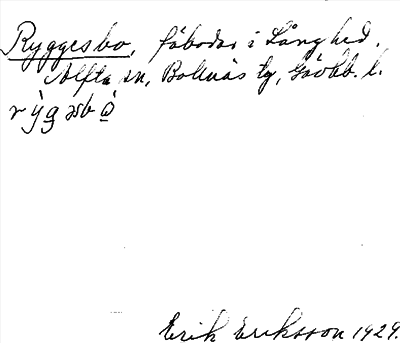 Ryggesbo, fäbodar i Långhed,
Alfta sn, Bollnäs tg, Gävleb. l.
Erik Eriksson 1929.